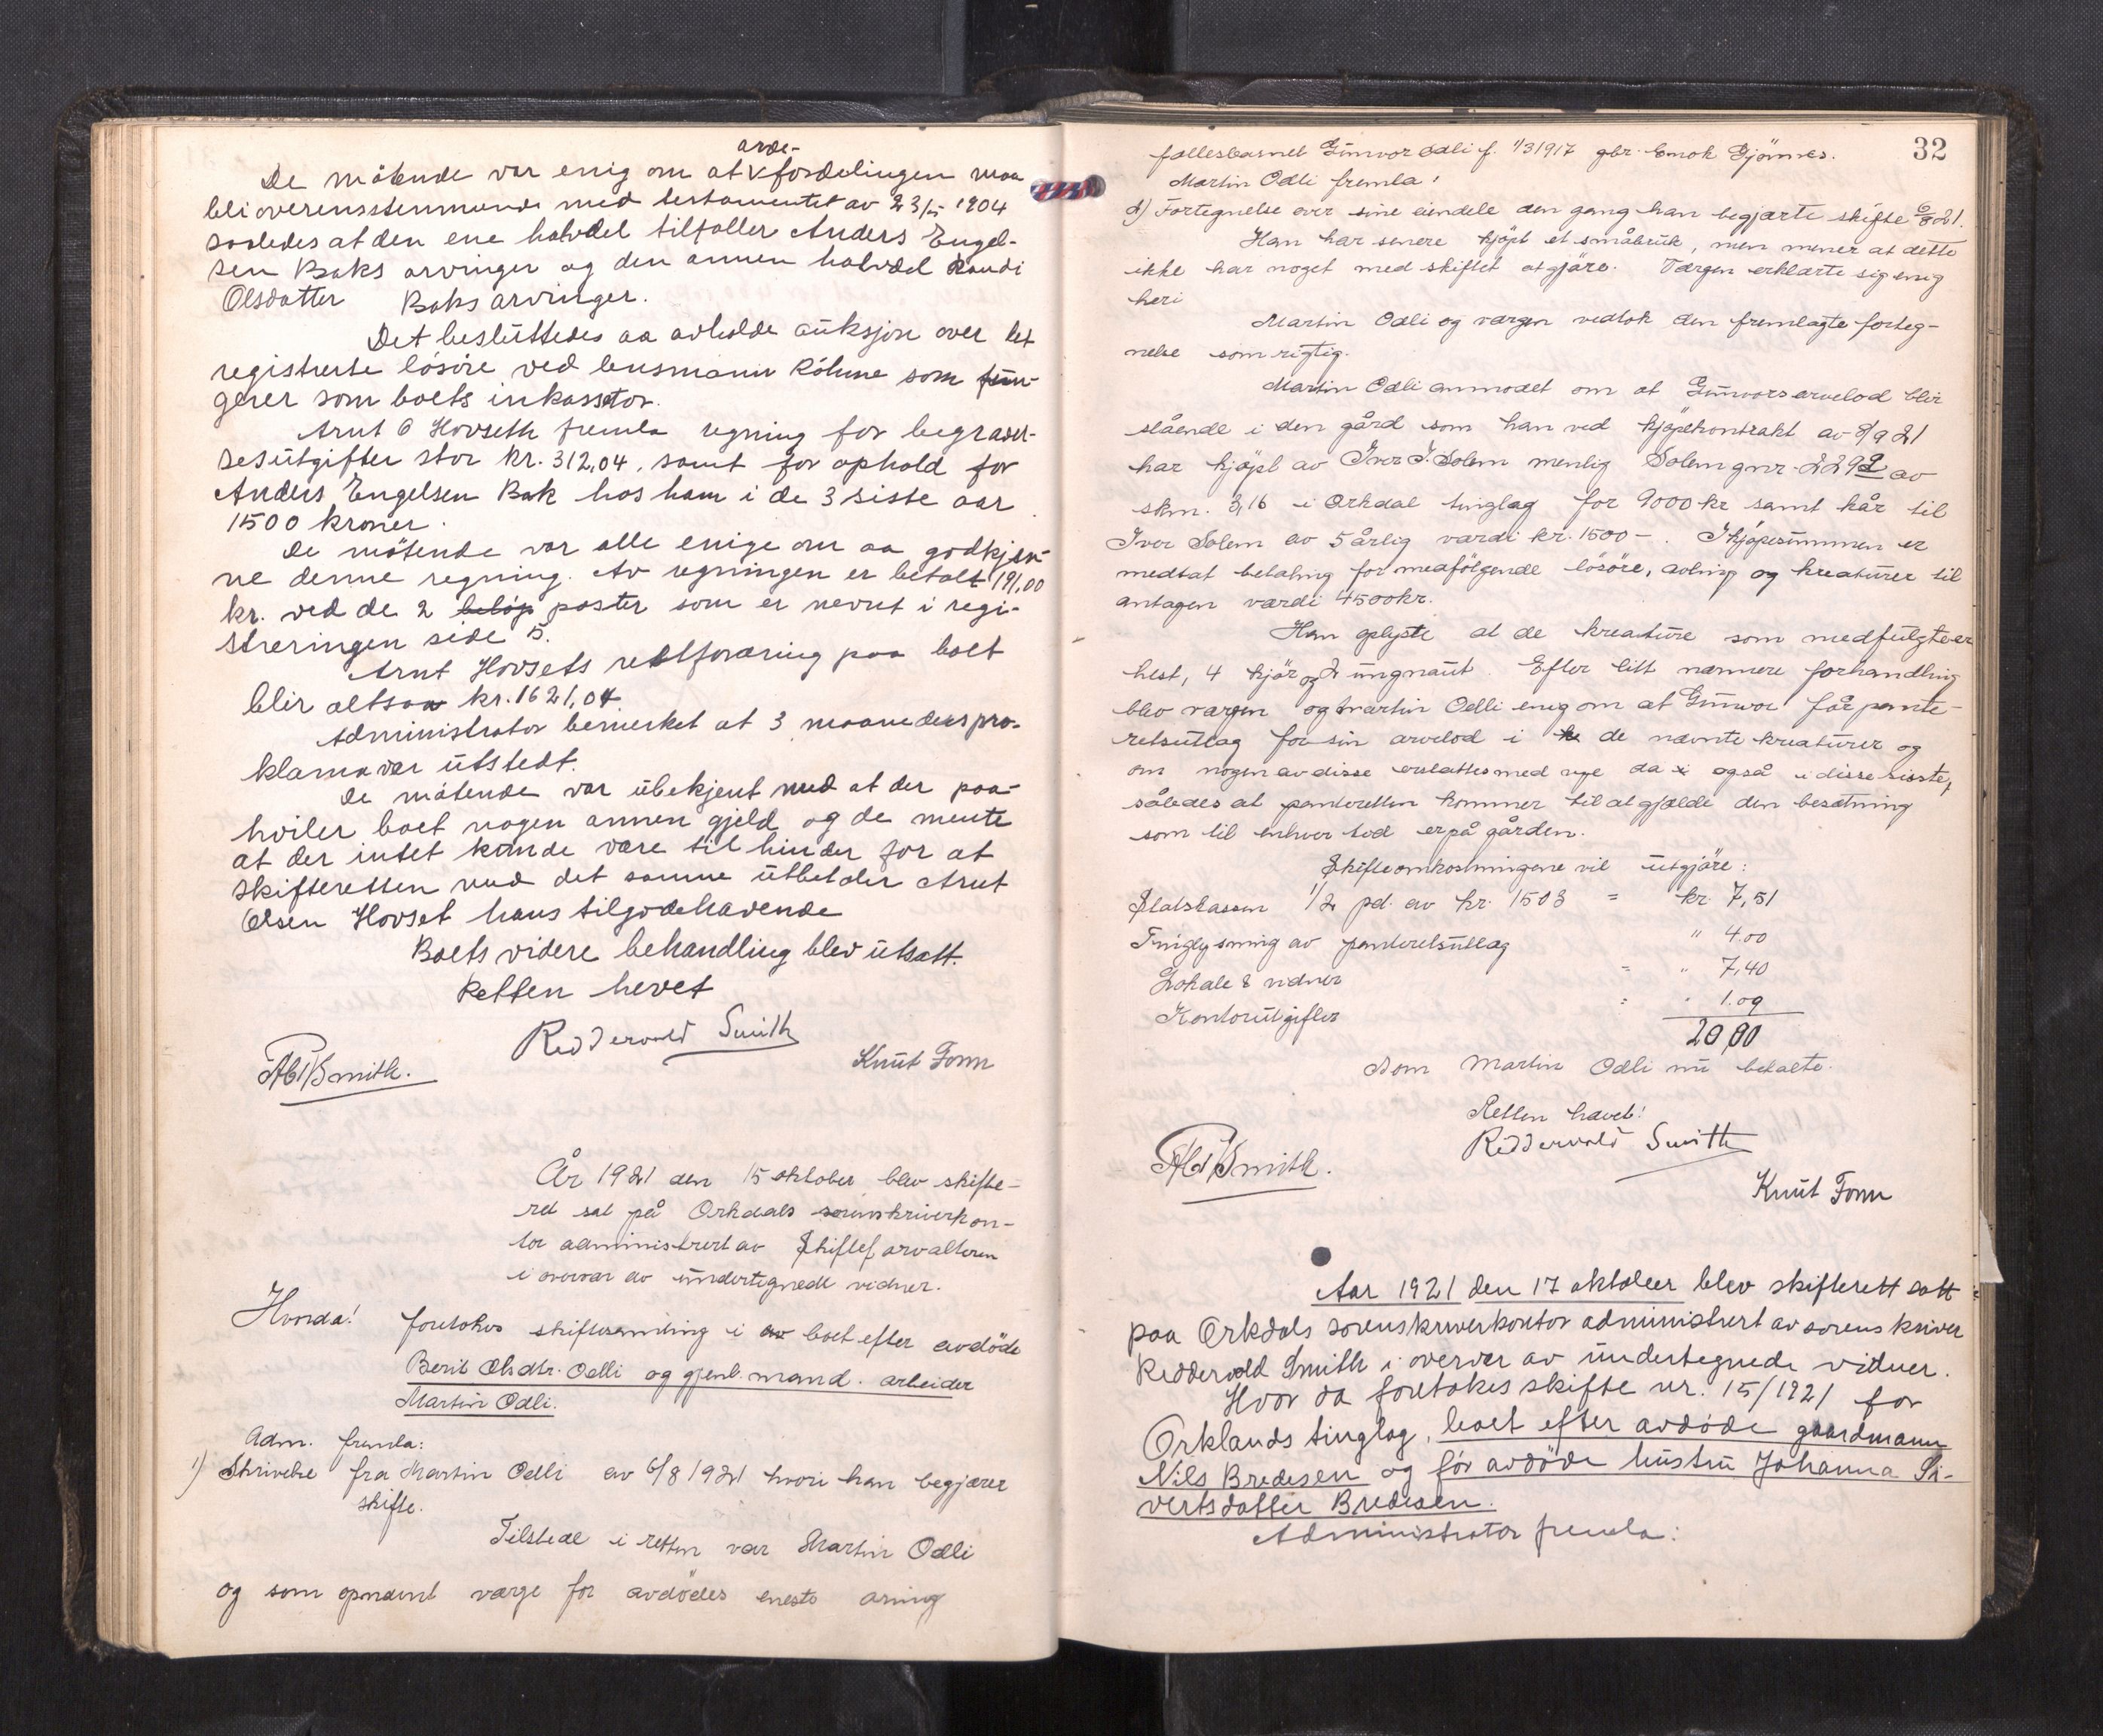 arve-
De mötende var enig om at fordelingen maa
bli overensstemmende med testamentet av 23/5 1904
saaledes at den ene halvdel tilfaller Anders Engel-
sen Baks arvinger og den annen halvdel Randi
Olsdatter Baks arvinger.
Det besluttedes aa avholde auksjon over det
registrerte lösöre ved lensmann Röhme som fun-
gerer som boets inkassator.
Arnt O Hovseth fremla regning for begravel-
sesutgifter stor kr. 312,04, samt for ophold for
Anders Engelsen Bak hos ham i de 3 siste aar
1500 kroner.
De mötende var alle enige om aa godkjen-
ne denne regning. Av regningen er betalt 191,00
kr. ved de 2 beløp poster som er nevnt i regi-
streringen side 5.
Arnt Hovsets restfordring paa boet
blir altsaa kr. 1621,04.
Administrator bemerket at 3 maaneders pro-
klama var utstedt.
De mötende var ubekjent med at der paa-
hviler boet nogen annen gjeld og de mente
at der intet kunde være til hinder for at
skifteretten med det samme utbetaler Arnt
Olsen Hovset hans tilgodehavende
Boets videre behandling blev utsatt.
Retten hevet
Ridderwold Smith
Abr Smith. Knut Fonn
År 1921 den 15 oktober blev skifte-
ret sat på Orkdals sorenskriverkon-
tor administrert av Skifteforvalteren
i overvær av undertegnede vidner.
Hvorda! foretokes skiftesamling i av boet efter avdöde
Berit Olsdtr. Odli og gjenl. mand. arbeider
Martin Odli.
Adm. fremla:
1) Skrivelse fra Martin Odli av 6/8 1921 hvori han begjærer
skifte.
Tilstede i retten var Martin Odli
og som opnævnt værge for avdödes eneste arving
32
fællesbarnet Gunvor Odli f. 1/3 1917 gbr. Enok Gjönnes.
Martin Odli fremla:
2) Fortegnelse over sine eiendele den gang han begjærte skifte 6/8 21.
Han har senere kjöpt et småbruk, men mener at dette
ikke har noget med skiftet at gjöre. Værgen erklærte sig enig
heri
Martin Odli og værgen vedtok den fremlagte forteg-
nelse som rigtig.
Martin Odli anmodet om at Gunvors arvelod blir
stående i den gård som han ved kjöpekontrakt av 8/9 21
har kjöpt av Iver J. Solem nemlig Solem gnr. 229 2 av
skm. 3,16 i Orkdal tinglag for 9000 kr samt kår til
Iver Solem av 5 årlig værdi kr. 1500 -. I kjöpesummen er
medtat betaling for medfölgende lösöre, avling og kreaturer til
antagen værdi 4500 kr.
Han oplyste at de kreature som medfulgte er
hest, 4 kjör og 2 ungnaut. Efter litt nærmere forhandling
blev værgen og Martin Odli enig om at Gunvor får pante-
retsutlæg for sin arvelod i de nævnte kreaturer og
om nogen av disse erstattes med nye da også i disse sisste,
således at panteretten kommer til at gjælde den besætning
som til enhver tid er på gården.
Skifteomkostningene vil utgjöre:
Statskassen 1/2 pct. av kr. 1503 = kr. 7,51
Tinglysning av panteretsutlæg " 4.00
Lokale & vidner = " 7,40
Kontorutgifter = " 1.09
20,00
som Martin Odli nu betalte.
Retten hævet!
Ridderwold Smith
Abr Smith.
Knut Fonn
Aar 1921 den 17 oktober blev skifterett satt
paa Orkdals sorenskriverkontor administrert av sorenskriver
Ridderwold Smith i overvær av undertegnede vidner.
Hvor da foretokes skifte nr. 15/1921 for
Orklands tinglag, boet efter avdöde gaardmann
Nils Bredesen og før avdöde hustru Johanna Si-
vertsdatter Bredesen.
Administrator fremla: